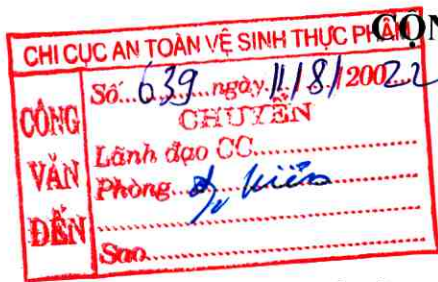 CỘN
CHI CỤC AN TOÀN VỆ SINH THỰC PHẨM
CÔNG VĂN ĐẾN
Số...639...ngày.11/8/20022
CHUYỂN
Lãnh đạo CC....................
Phòng
Sao....................